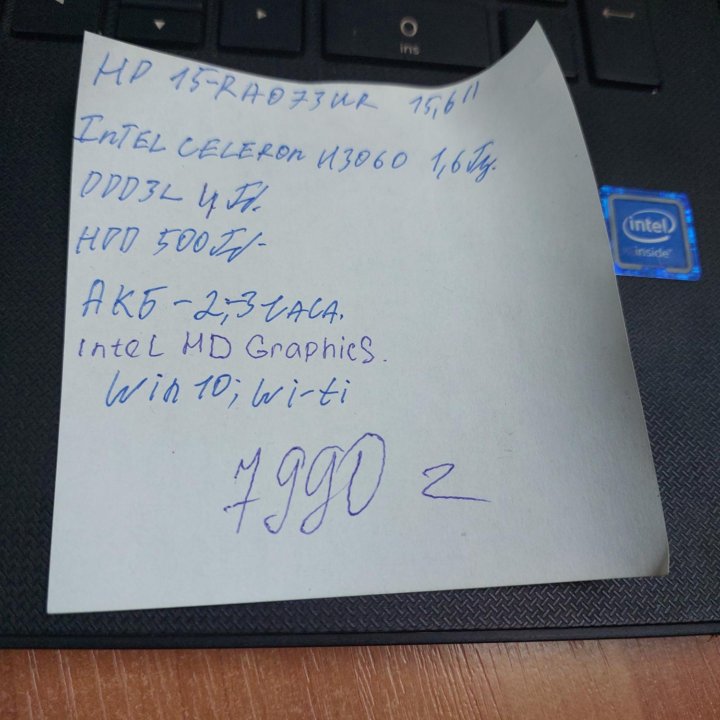 ins
HP 15-RA073UR 15,6"
INTEL CELERON N3060 1,6 Гц.
DDD3L 4 Гб.
HDD 500 Гб-
АКБ - 2,5-3 ЧАСА.
Intel HD Graphics.
Win 10; Wi-ti
7990
intel
inside